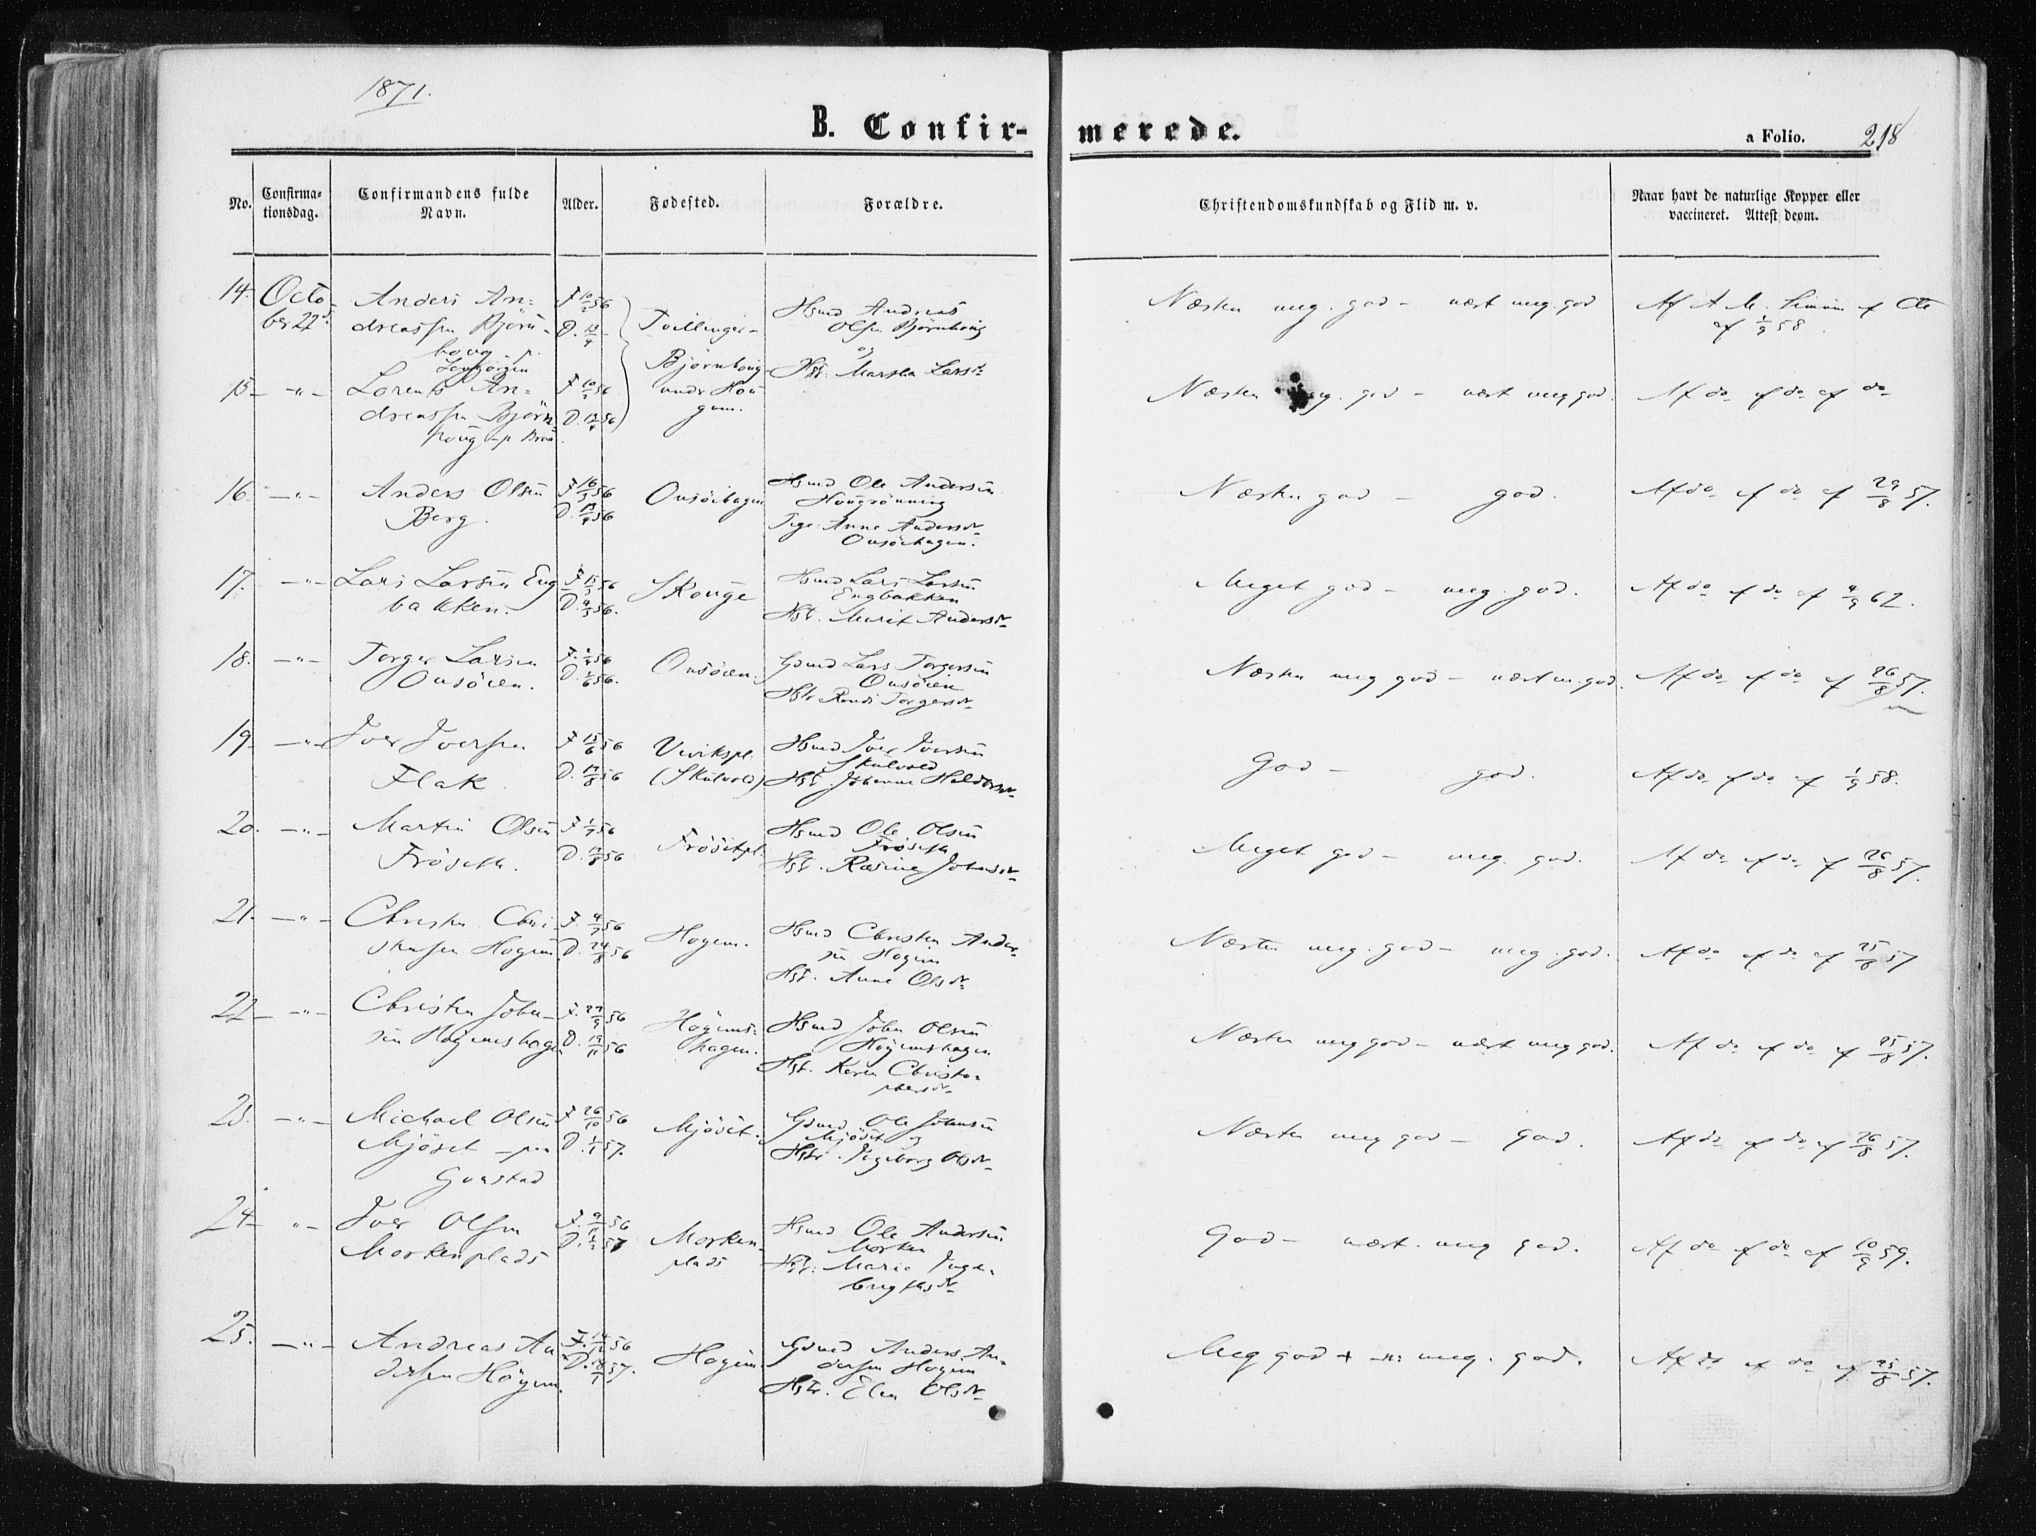 1871.
B. Confir-
merede.
a Folio. 218
No.
Confirma-
tionsdag.
Confirmandens fulde
Navn.
Alder.
Fødested.
Forældre.
Christendomskundskab og Flid m. v.
Naar havt de naturlige Kopper eller
vaccineret. Attest derom.
14. Octo
ber 22
Anders An=
dreassen Björn-
houg
F. 10/2 56
Tvillinger
Björnhoug
under Hou
gum.
Hsmd Andreas
Olsen Björnhoug
og
Hst. Martha Larsdr
Næsten meg. god - næst meg. god
af 1/9 58.
15 - " - Lorents An=
dreassen Björn
houg
F. 10/2 56
Næsten meg. god - næst meg god.
Af do af do af do
16. - " - Anders Olsen
Berg.
F. 16/3 56
Onsöihagen
Hsmd Ole Andersen
Hougrönning
Pige: Anne Andersdr
Onsöihagen.
Næsten god - god.
Af do af do af 29/8 57.
17. - " - Lars Larsen Eng
bakken.
F. 15/3 56
Skouge
Hsmd Lars Larsen
Engbakken
Hst. Marit Andersdr
Meget god - meg. god.
Af do af do af 4/9 62.
18. - " - Torger Larsen
Onsöien.
D. 1/6 56.
Onsöien.
Gsmd Lars Torgersen
Onsöien
Hstr Randi Torgersdr
Næsten meg god - næst m. god.
Af do af do af 26/8 57.
19 - " - Iver Iversen
Flak.
F. 15/6 56
D. 17/8 56
Vivikspl.
(Skulvold)
Hsmd Iver Iversen
Skulvold
Hst. Johanna Haldorsdr
God - god.
Af do af do af 1/9 58.
20. - " - Martin Olsen
Fröseth.
F. 1/7 56
Frösetpl.
Hsmd Ole Olsen
Fröseth
Hst. Rasine Johnsdr
Meget god - meg. god.
Af do af do af 26/8 57.
21. - " - Christen Chri
stensen Högum
F. 4/7 56
D. 24/8 56
Hogem.
Hsmd Christen Ander
sen Hogem
Hst. Anne Olsdr
Næsten meg. god - meg. god.
Af do af do af 25/8 57
22 - " - Christen John-
sen Högemshagen
F. 27/9 56
D. 19/11 56
Högems-
hagen.
Hsmd John Olsen
Högemshagen
Hst. Karen Christo-
phersdr
Næsten meg god - næst meg god.
Af do af do af 25/8 57.
23. - " - Michael Olsen
Mjöset - paa
Gunstad
F. 26/10 56
D. 1/1 57.
Mjöset.
Gsmd Ole Johnsen
Mjöset og
Hstr. Ingeborg Olsdr
Næsten meg god - God.
Af do af do af 26/8 57.
24 - " - Iver Olsen
Morkenplads
F. 9/11 56
D. 1/2 57
Morken-
plads
Hsmd Ole Andersen
Morken
Hst. Marie Inge-
brigtsdr
God - næst. meg god.
Af do af do af 10/9 59.
25. - " - Andreas An
dersen Högem.
F. 14/12 56
D. 18/1 57.
Hogem
Gsmd Anders An-
dersen Hogem
Hstr. Elen Olsdr
Meg god + meg. god.
Af do af do af 25/8 57.